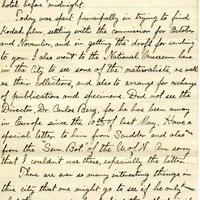 hotel before midnight.
Today was spent principally in trying to find
Kodak films, settling with the commission for October
and November, and in getting the draft for sending
to you. I also went to the National Museum here
in the City to see some of the naturalists, as well
as their collections, and also to arrange for
of publications and specimens. Did not see the
Director, Dr. Carlos Berg, for he has been away
in Europe since the 10th of last May. Have a
special letter to him from Scudder and also
from the Sem. Bot. of the U of N. Am sorry
that I couldn't use these, especially the latter.
There are so many interesting things in
this city that one might go to see if he only